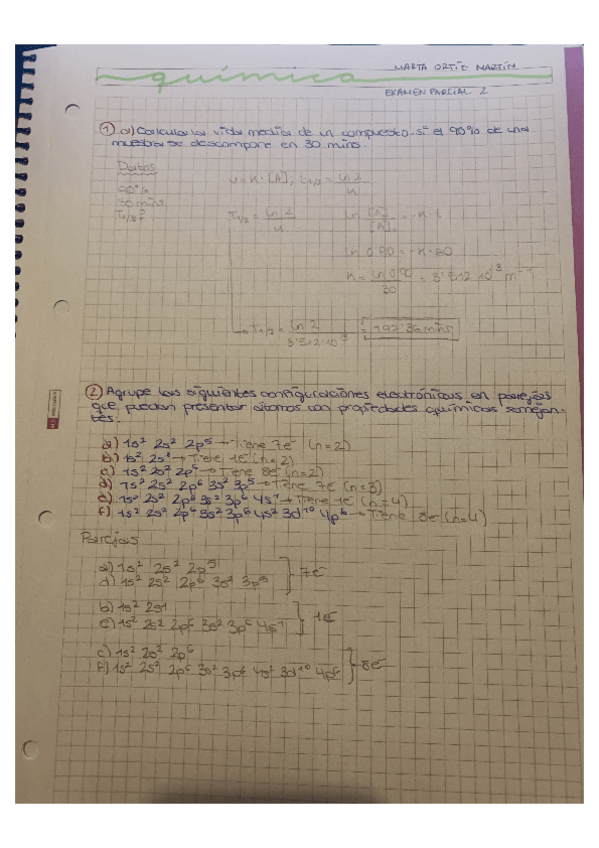 química
MARTA ORTIZ MARTÍN
EXAMEN PARCIAL 2
① a) Calcular la vida media de un compuesto si el 90% de una
muestra se descompone en 30 mins.
Datos
90%
30 mins
T1/2 ?
v = K · [A], t1/2 = ln 2 / K
T1/2 = ln 2 / K
ln [A] / [A]₀ = -K · t
ln 0'90 = -K · 30
K = ln 0'90 / 30 = 3'512 · 10⁻³ m⁻¹
→ T1/2 = ln 2 / 3'512 · 10⁻³ = 197'36 mins
② Agrupe las siguientes configuraciones electrónicas en parejas
que puedan presentar átomos con propiedades químicas semejan-
tes.
a) 1s² 2s² 2p⁵ → Tiene 7e⁻ (n=2)
b) 1s² 2s¹ → Tiene 1e⁻ (n=2)
c) 1s² 2s² 2p⁶ → Tiene 8e⁻ (n=2)
d) 1s² 2s² 2p⁶ 3s² 3p⁵ → Tiene 7e⁻ (n=3)
e) 1s² 2s² 2p⁶ 3s² 3p⁶ 4s¹ → Tiene 1e⁻ (n=4)
f) 1s² 2s² 2p⁶ 3s² 3p⁶ 4s² 3d¹⁰ 4p⁶ → Tiene 8e⁻ (n=4)
Parejas
a) 1s² 2s² 2p⁵
d) 1s² 2s² 2p⁶ 3s² 3p⁵ } 7e⁻
b) 1s² 2s1
e) 1s² 2s² 2p⁶ 3s² 3p⁶ 4s¹ } 1e⁻
c) 1s² 2s² 2p⁶
f) 1s² 2s² 2p⁶ 3s² 3p⁶ 4s² 3d¹⁰ 4p⁶ } 8e⁻